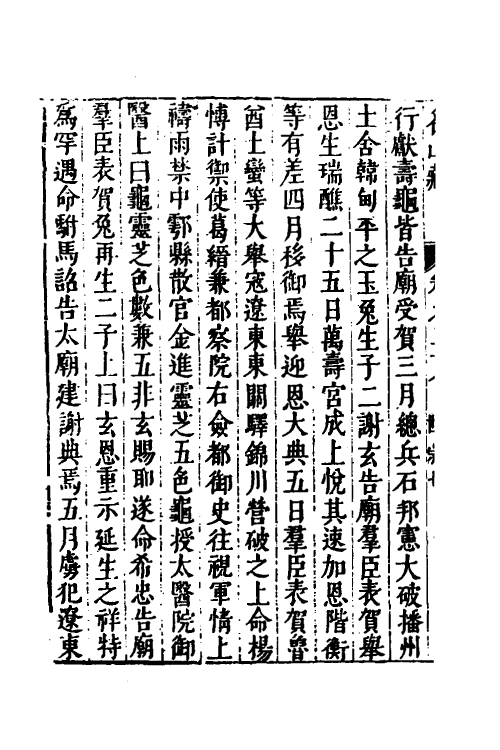 行獻壽龜皆告廟受賀三月總兵石邦憲大破播州
土舍韓甸平之玉兔生子二謝玄告廟羣臣表賀舉
恩生瑞醮二十五日萬壽宮成上悅其速加恩階衡
等有差四月移御焉舉迎恩大典五日羣臣表賀曾
酋土蠻等大舉寇遼東東關驛錦川營破之上命楊
博計禦使葛縉兼都察院右僉都御史往視軍情上
禱雨禁中鄠縣散官金進靈芝五色龜授太醫院御
醫上曰龜靈芝色數兼五非玄賜耶遂命希忠告廟
羣臣表賀兔再生二子上曰玄恩重示延生之祥特
爲罕遇命駙馬詔告太廟建謝典焉五月虜犯遼東